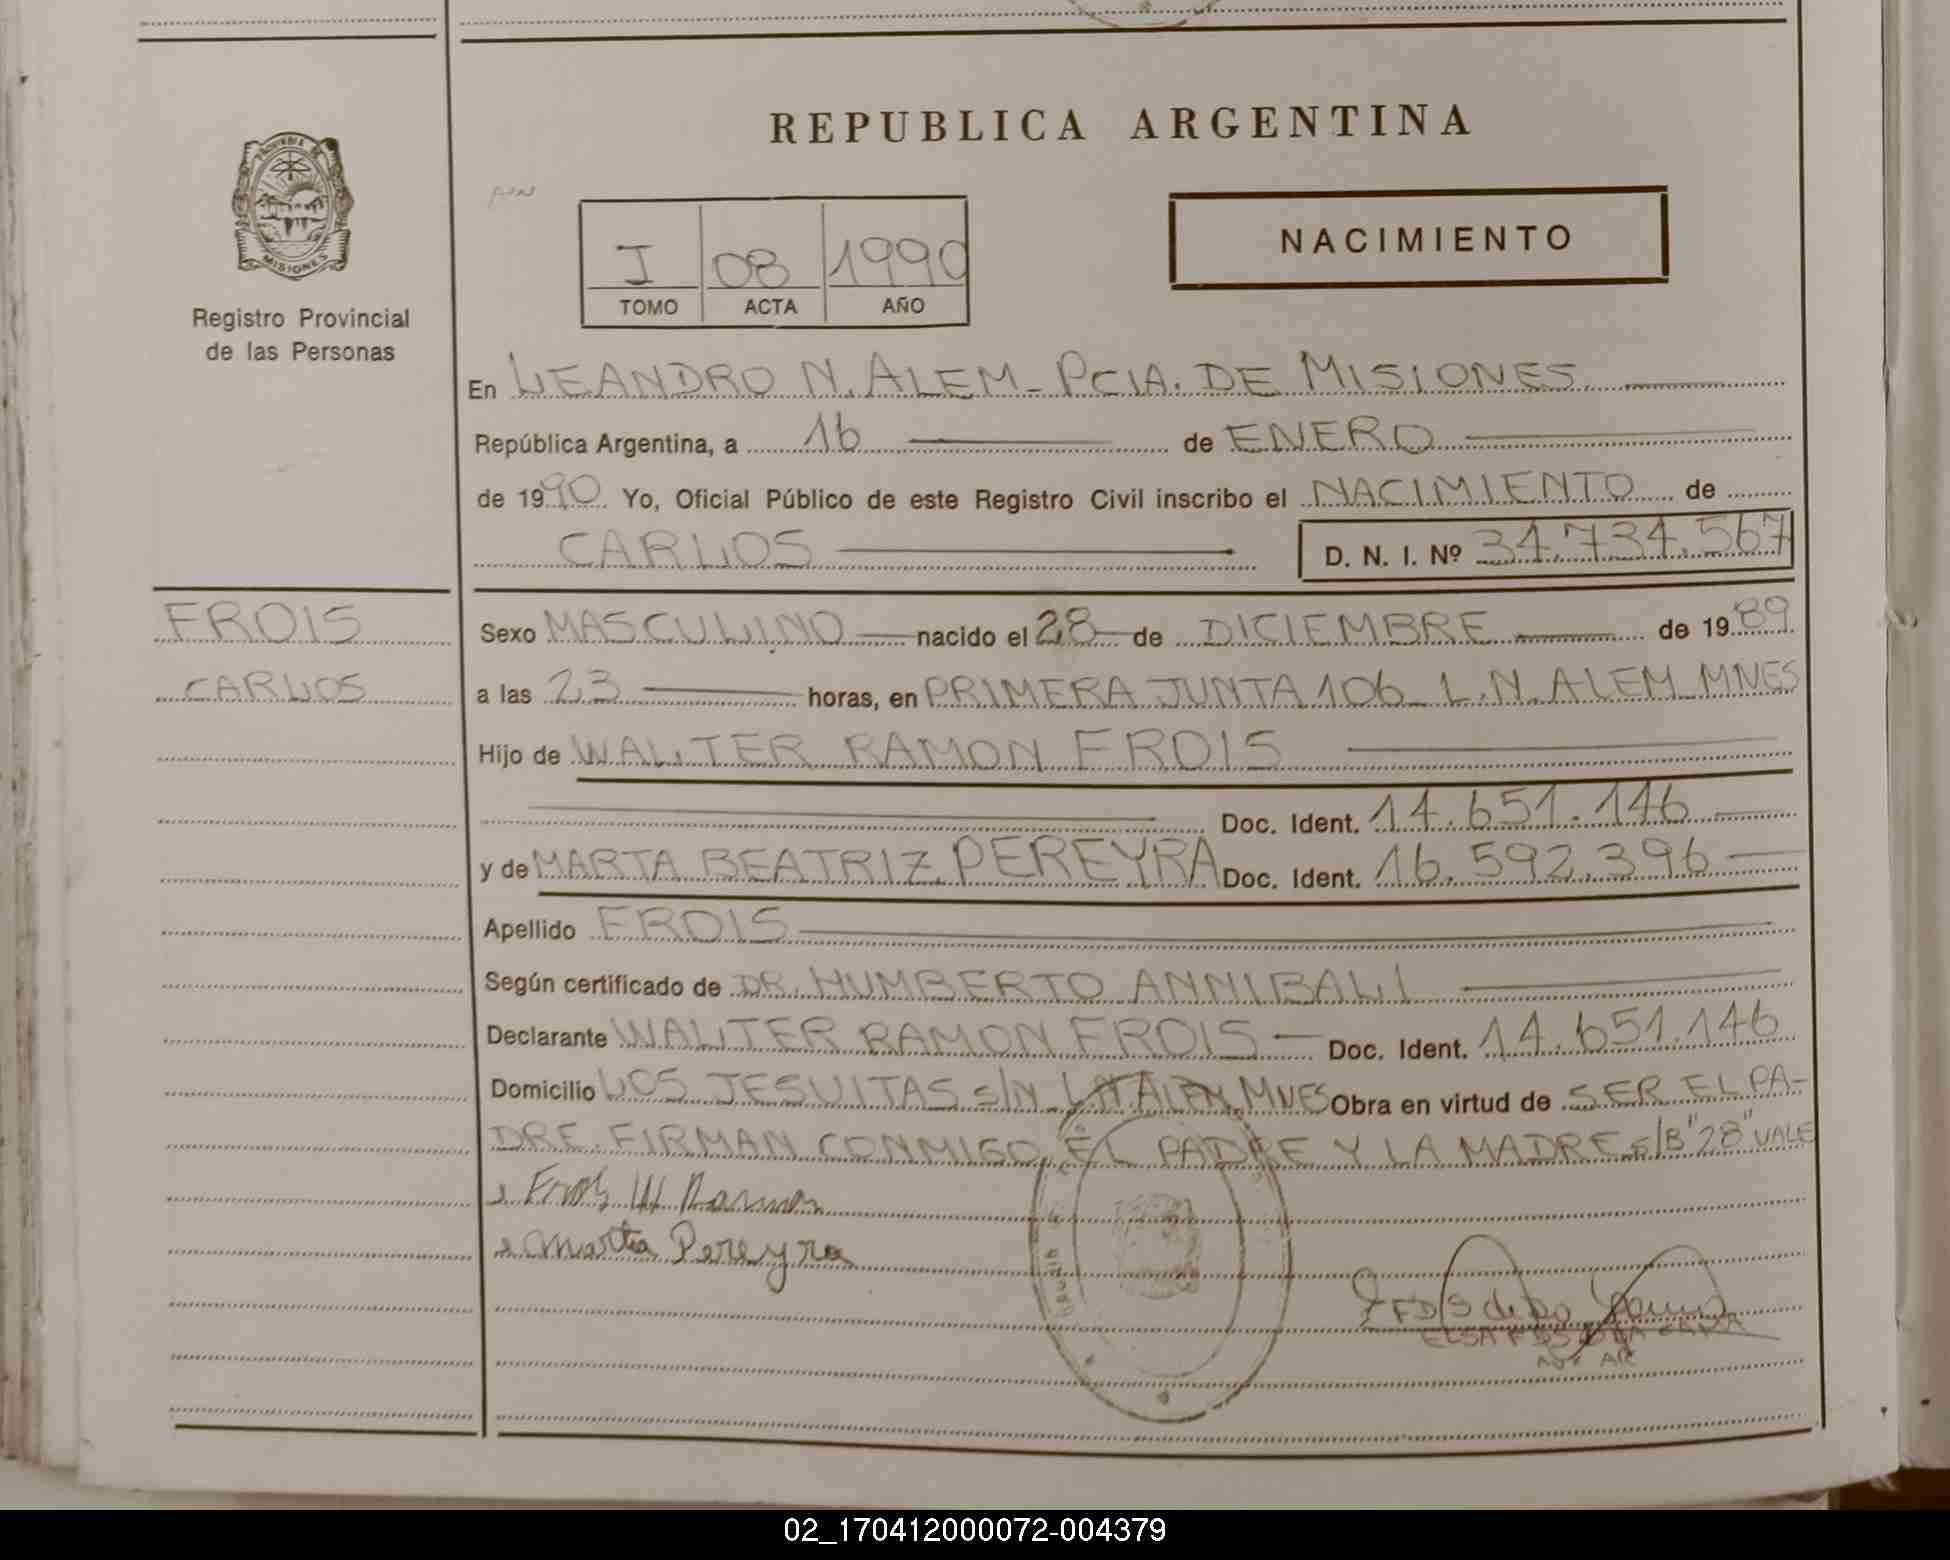 REPUBLICA ARGENTINA
MISIONES
Registro Provincial
de las Personas
I 08 1990
TOMO ACTA AÑO
NACIMIENTO
En LEANDRO N. ALEM - PCIA. DE MISIONES
República Argentina, a 16 de ENERO
de 1990 Yo, Oficial Público de este Registro Civil inscribo el NACIMIENTO de
CARLOS D. N. I. Nº 34.734.567
FROIS
CARLOS
Sexo MASCULINO nacido el 28 de DICIEMBRE de 1989
a las 23 horas, en PRIMERA JUNTA 106 - L.N. ALEM MNES
Hijo de WALTER RAMON FROIS
Doc. Ident. 14.651.146
y de MARTA BEATRIZ PEREYRA Doc. Ident. 16.592.396
Apellido FROIS
Según certificado de DR. HUMBERTO ANNIBALI
Declarante WALTER RAMON FROIS Doc. Ident. 14.651.146
Domicilio LOS JESUITAS s/N L.N. ALEM, MNES Obra en virtud de SER EL PA-
DRE. FIRMAN CONMIGO EL PADRE Y LA MADRE s/B "28" VALE
Frois W Ramon
Marta Pereyra
02_170412000072-004379